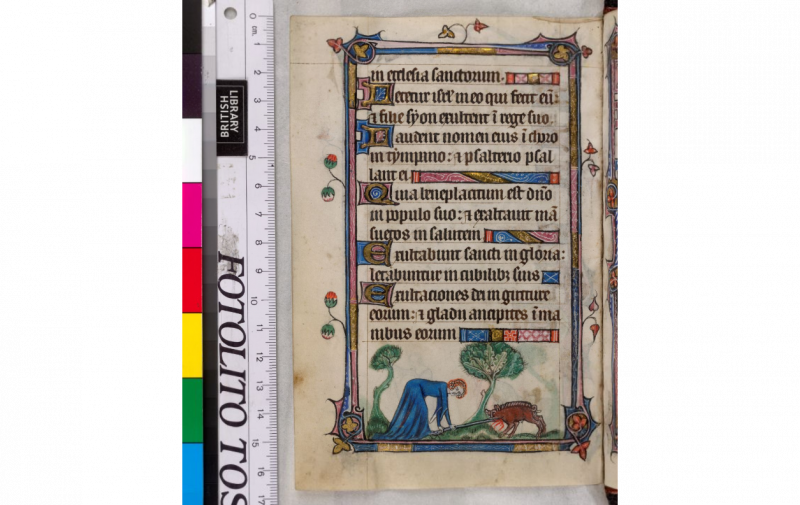 in ecclesia sanctorum.
Letetur isrl' in eo qui fecit eū:
⁊ filie syon exultent ī rege suo.
Laudent nomen eius ī choro
in tympano: ⁊ psalterio psal
lant ei
Quia beneplacitum est dño
in populo suo: ⁊ exaltauit mā
suetos in salutem
Exultabunt sancti in gloria:
letabuntur in cubilibꝫ suis
Exultaciones dei in gutture
eorum: ⁊ gladii ancipites ī ma
nibus eorum
BRITISH
LIBRARY
FOTOLITO TOS
0
cm.
1
2
3
4
5
6
7
8
9
10
11
12
13
14
15
16
17